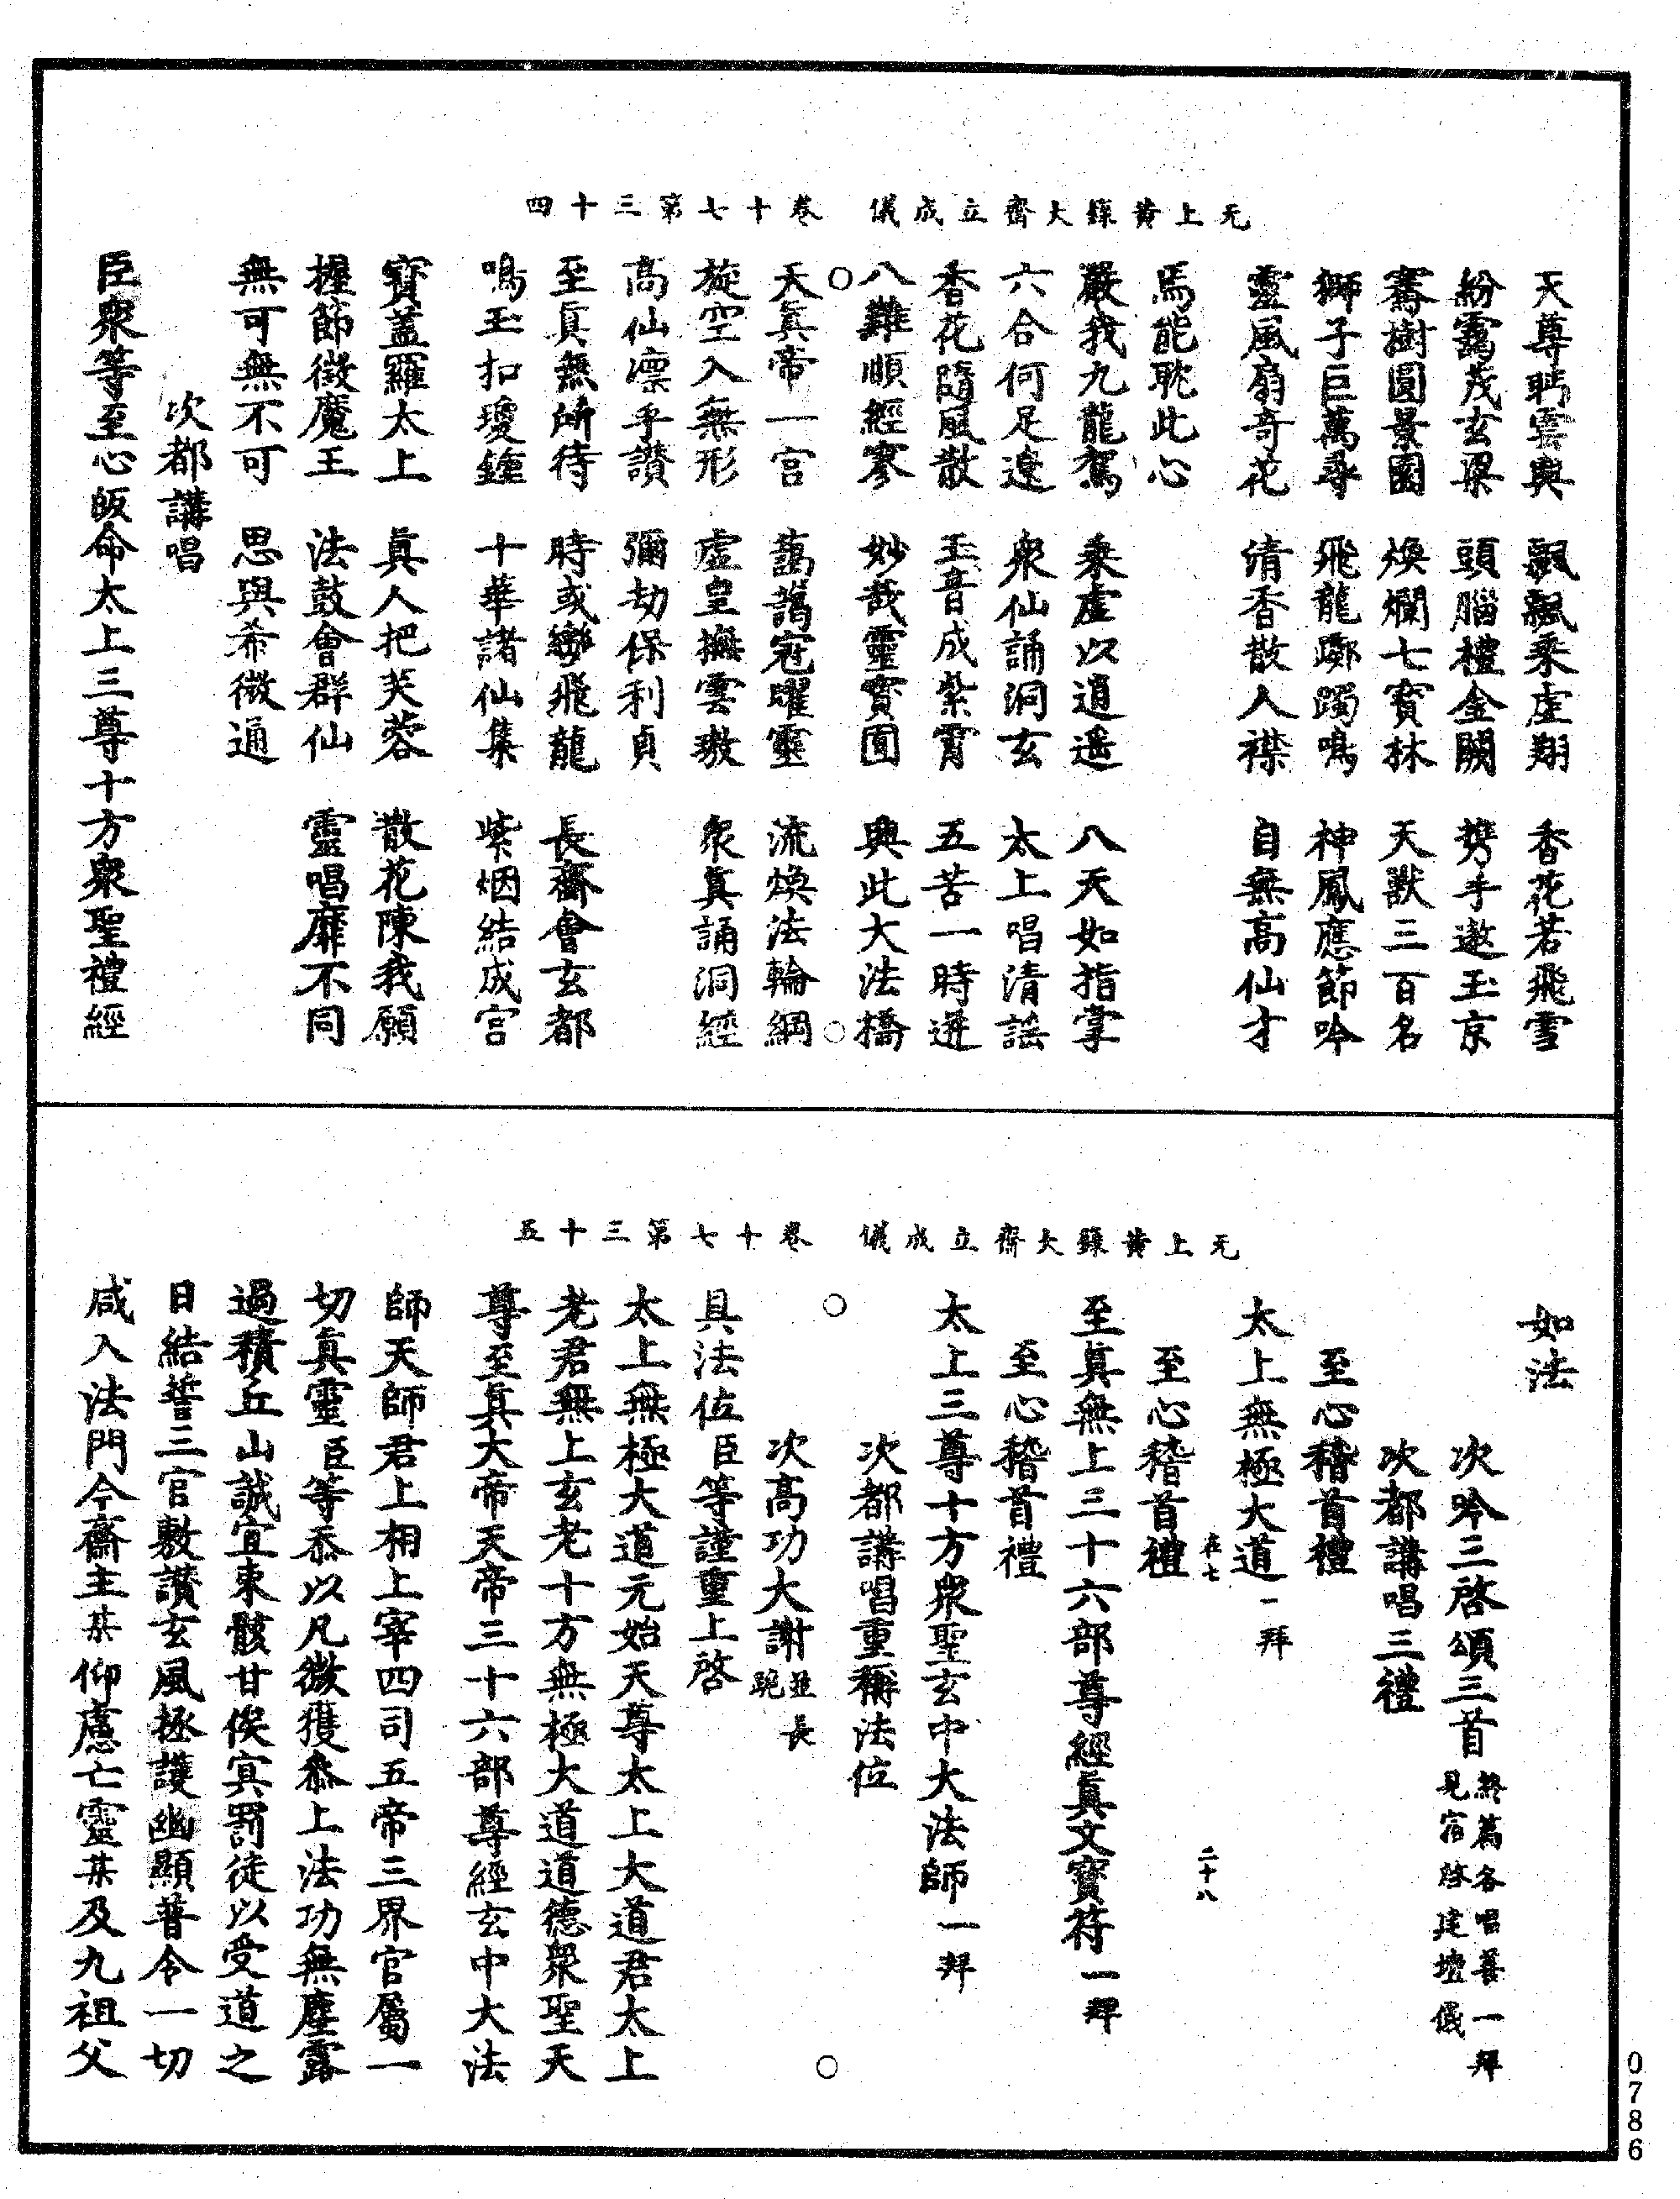 无上黃籙大齋立成儀　卷十七第三十四
天尊眄雲輿　飄飄乘虛翔　香花若飛雪
紛靄茂玄梁　頭腦禮金闕　携手遨玉京
騫樹圓景園　煥爛七寶林　天獸三百名
獅子巨萬尋　飛龍躑躅鳴　神鳳應節吟
靈風扇奇花　清香散人襟　自無高仙才
焉能耽此心
嚴我九龍駕　乘虛以逍遙　八天如指掌
六合何足遼　衆仙誦洞玄　太上唱清謠
香花隨風散　玉音成紫霄　五苦一時迸
八難順經寥　妙哉靈寶囿　興此大法橋
天眞帝一宮　藹藹冠曜靈　流煥法輪綱
旋空入無形　虛皇撫雲璈　衆眞誦洞經
高仙凛乎讚　彌劫保利貞
至眞無所待　時或轡飛龍　長齋會玄都
鳴玉扣瓊鐘　十華諸仙集　紫烟結成宮
寶蓋羅太上　眞人把芙蓉　散花陳我願
握節徵魔王　法鼓會群仙　靈唱靡不同
無可無不可　思與希微通
次都講唱
臣衆等至心皈命太上三尊十方衆聖禮經
无上黃籙大齋立成儀　卷十七第三十五
如法
次吟三啓頌三首 終篇各唱善一拜見宿啓建壇儀
次都講唱三禮
至心稽首禮
太上無極大道 一拜
在七　二十八
至心稽首禮
至眞無上三十六部尊經眞文寶符 一拜
至心稽首禮
太上三尊十方衆聖玄中大法師 一拜
次都講唱重稱法位
次高功大謝 並長跪
具法位臣等謹重上啓
太上無極大道元始天尊太上大道君太上
老君無上玄老十方無極大道道德衆聖天
尊至眞大帝天帝三十六部尊經玄中大法
師天師君上相上宰四司五帝三界官屬一
切眞靈臣等忝以凡微獲叅上法功無塵露
過積丘山誠宜束骸甘俟冥罰徒以受道之
日結誓三官敷讚玄風拯護幽顯普令一切
咸入法門今齋主某仰慮亡靈某及九祖父
0786